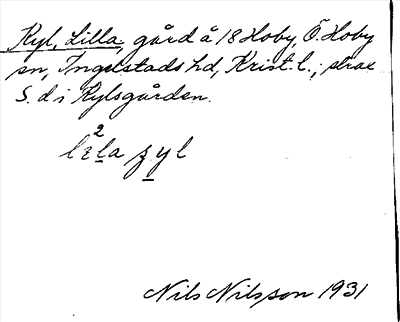 Kyl, Lilla, gård å 18 Hoby, Ö. Hoby
sn, Ingelstads hd, Krist. l.; strax
S. d i Kylsgården.
2
lɛla ʒyl
Nils Nilsson 1931